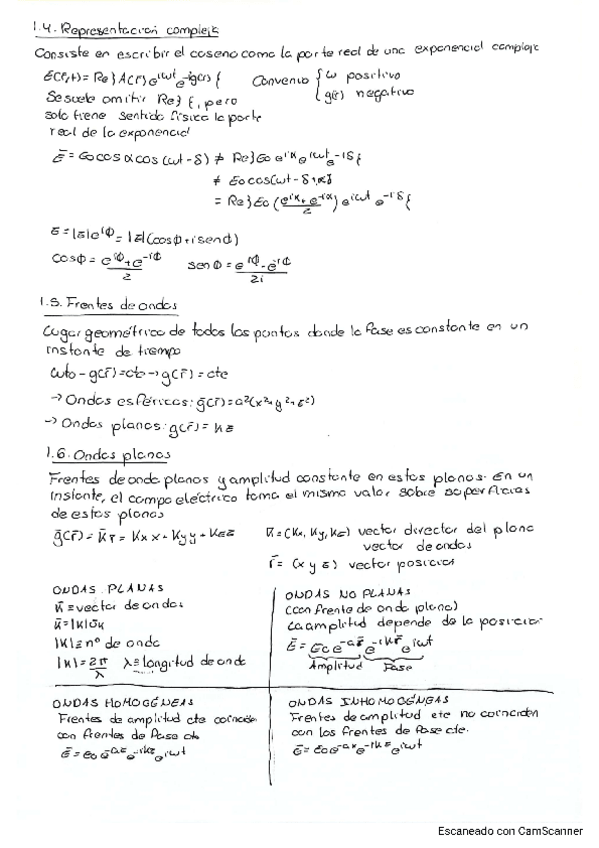 1.4. Representación compleja
Consiste en escribir el coseno como la parte real de una exponencial compleja
E(r,t) = Re} A(r) e^iωt e^-ig(r) {
Convenio { ω positivo
g(r) negativo
Se suele omitir Re} {, pero
solo tiene sentido físico la parte
real de la exponencial
Ē = E0 cos α cos (ωt - δ) ≠ Re} E0 e^iα e^iωt e^-iδ {
≠ E0 cos(ωt - δ + α)
= Re} E0 (e^iα + e^-iα / 2) e^iωt e^-iδ {
z̄ = |z| e^iΦ = |z| (cosΦ + i senΦ)
cosΦ = e^iΦ + e^-iΦ / 2 senΦ = e^iΦ - e^-iΦ / 2i
1.5. Frentes de ondas
Lugar geométrico de todos los puntos donde la fase es constante en un
instante de tiempo
ωt0 - g(r̄) = cte → g(r̄) = cte
→ Ondas esféricas: g(r̄) = a²(x² + y² + z²)
→ Ondas planas: g(r̄) = kz
1.6. Ondas planas
Frentes de onda planos y amplitud constante en estos planos. En un
instante, el campo eléctrico toma el mismo valor sobre superficies
de estos planos
g(r̄) = k̄ r̄ = Kx x + Ky y + Kz z
k̄ = (Kx, Ky, Kz) vector director del plano
vector de ondas
r̄ = (x y z) vector posición
ONDAS PLANAS
k̄ ≡ vector de ondas
k̄ = |k| ūk
|k| ≡ nº de onda
|k| = 2π / λ λ ≡ longitud de onda
ONDAS NO PLANAS
(con frente de onda plano)
La amplitud depende de la posición
Ē = E0 e^-ar̄ e^-ik̄r̄ e^iωt
Amplitud Fase
ONDAS HOMOGÉNEAS
Frentes de amplitud cte coinciden
con frentes de fase cte
Ē = E0 e^-az e^-ikz e^iωt
ONDAS INHOMOGÉNEAS
Frentes de amplitud cte no coinciden
con los frentes de fase cte.
Ē = E0 e^-ax e^-ikz e^iωt
Escaneado con CamScanner